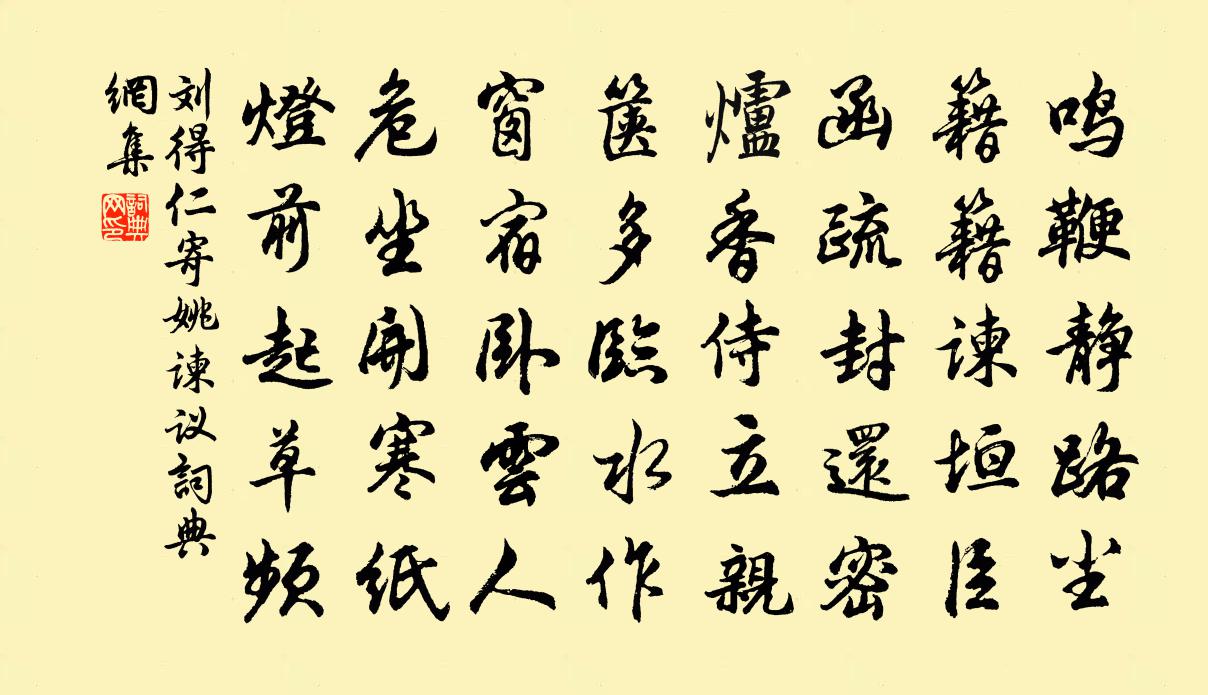 鸣鞭静路尘
籍籍谏垣臣
函疏封還密
爐香侍立親
箧多臨水作
窗宿卧雲人
危坐開寒紙
燈前起草頻
刘得仁寄姚谏议詞典
網集
詞典网印